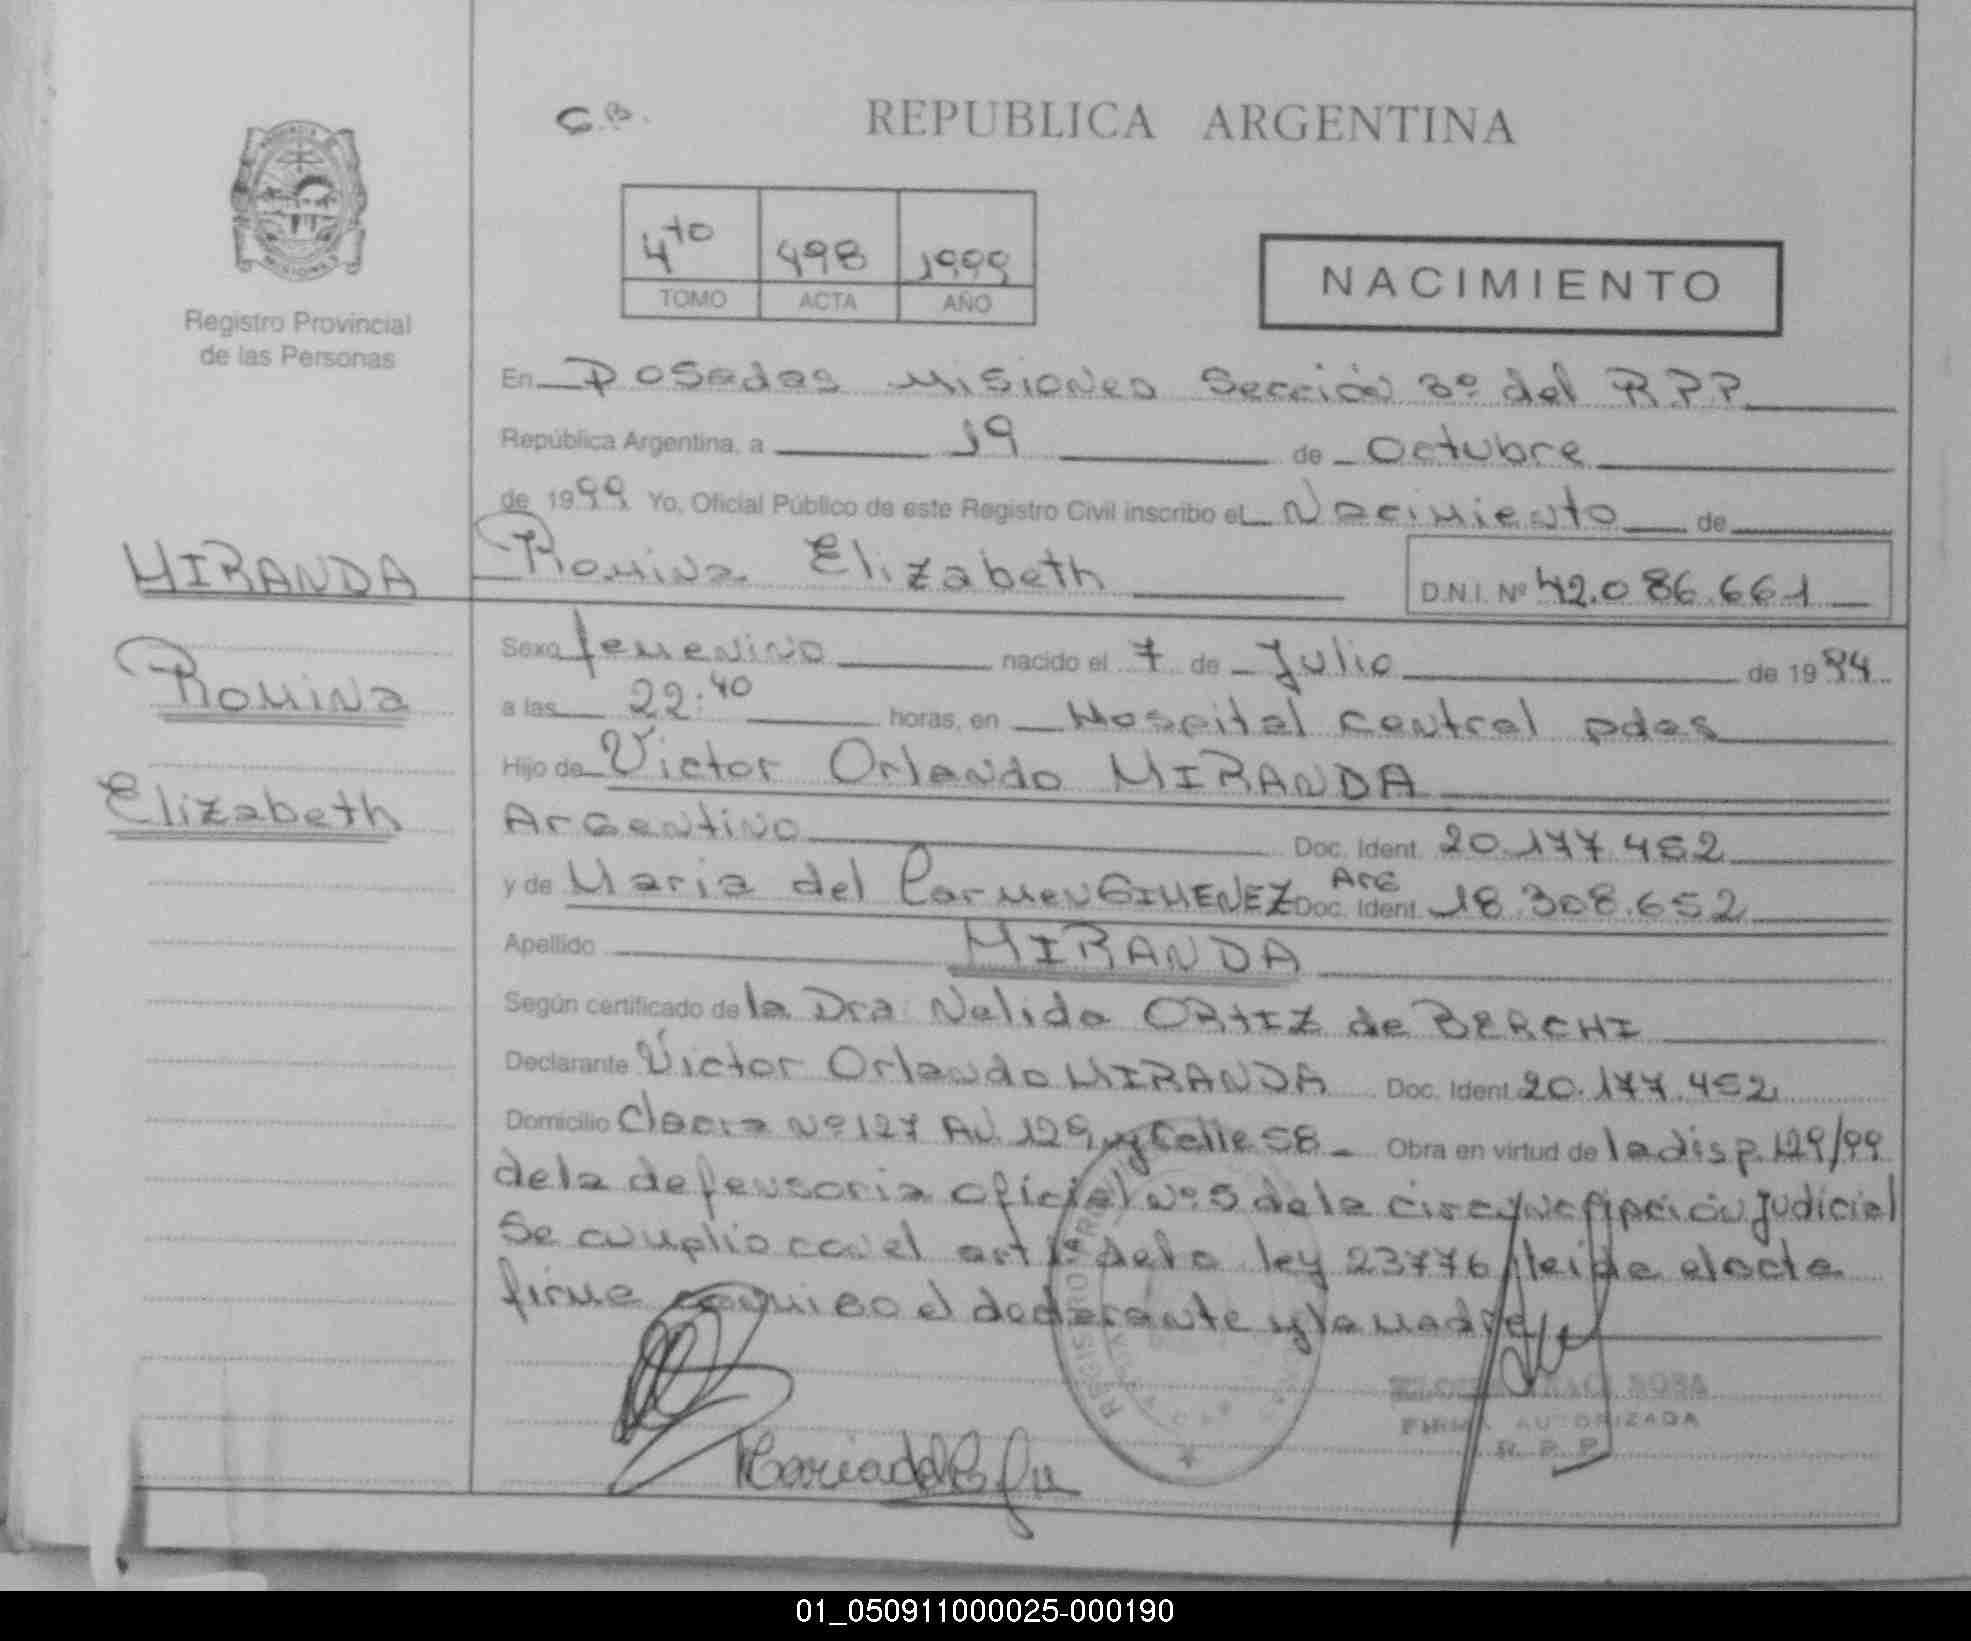 C.B.
REPUBLICA ARGENTINA
4to 498 1999
TOMO ACTA AÑO
NACIMIENTO
Registro Provincial
de las Personas
En Posadas Misiones Sección 3º del R.P.P.
República Argentina, a 19 de Octubre
de 1999 Yo, Oficial Público de este Registro Civil inscribo el Nacimiento de
MIRANDA
Romina Elizabeth D.N.I. Nº 42.086.661
Romina
Elizabeth
Sexo femenino nacido el 7 de Julio de 1994
a las 22:40 horas, en Hospital central pdas
Hijo de Victor Orlando MIRANDA
Argentino Doc. Ident. 20.177.452
y de Maria del Carmen GIMENEZ Arg Doc. Ident. 18.308.652
Apellido MIRANDA
Según certificado de la Dra Nelida ORTIZ de BERCHI
Declarante Victor Orlando MIRANDA Doc. Ident. 20.177.452
Domicilio Chacra Nº 127 Av. 129 y Calle 58 - Obra en virtud de la disp. 129/99
de la defensoria oficial Nº 5 de la circunscripción Judicial
Se cumplio con el art 1º de la ley 23776 leida el acta
firma conmigo el declarante y la madre
Maria del C
FIRMA AUTORIZADA
R.P.P.
01_050911000025-000190